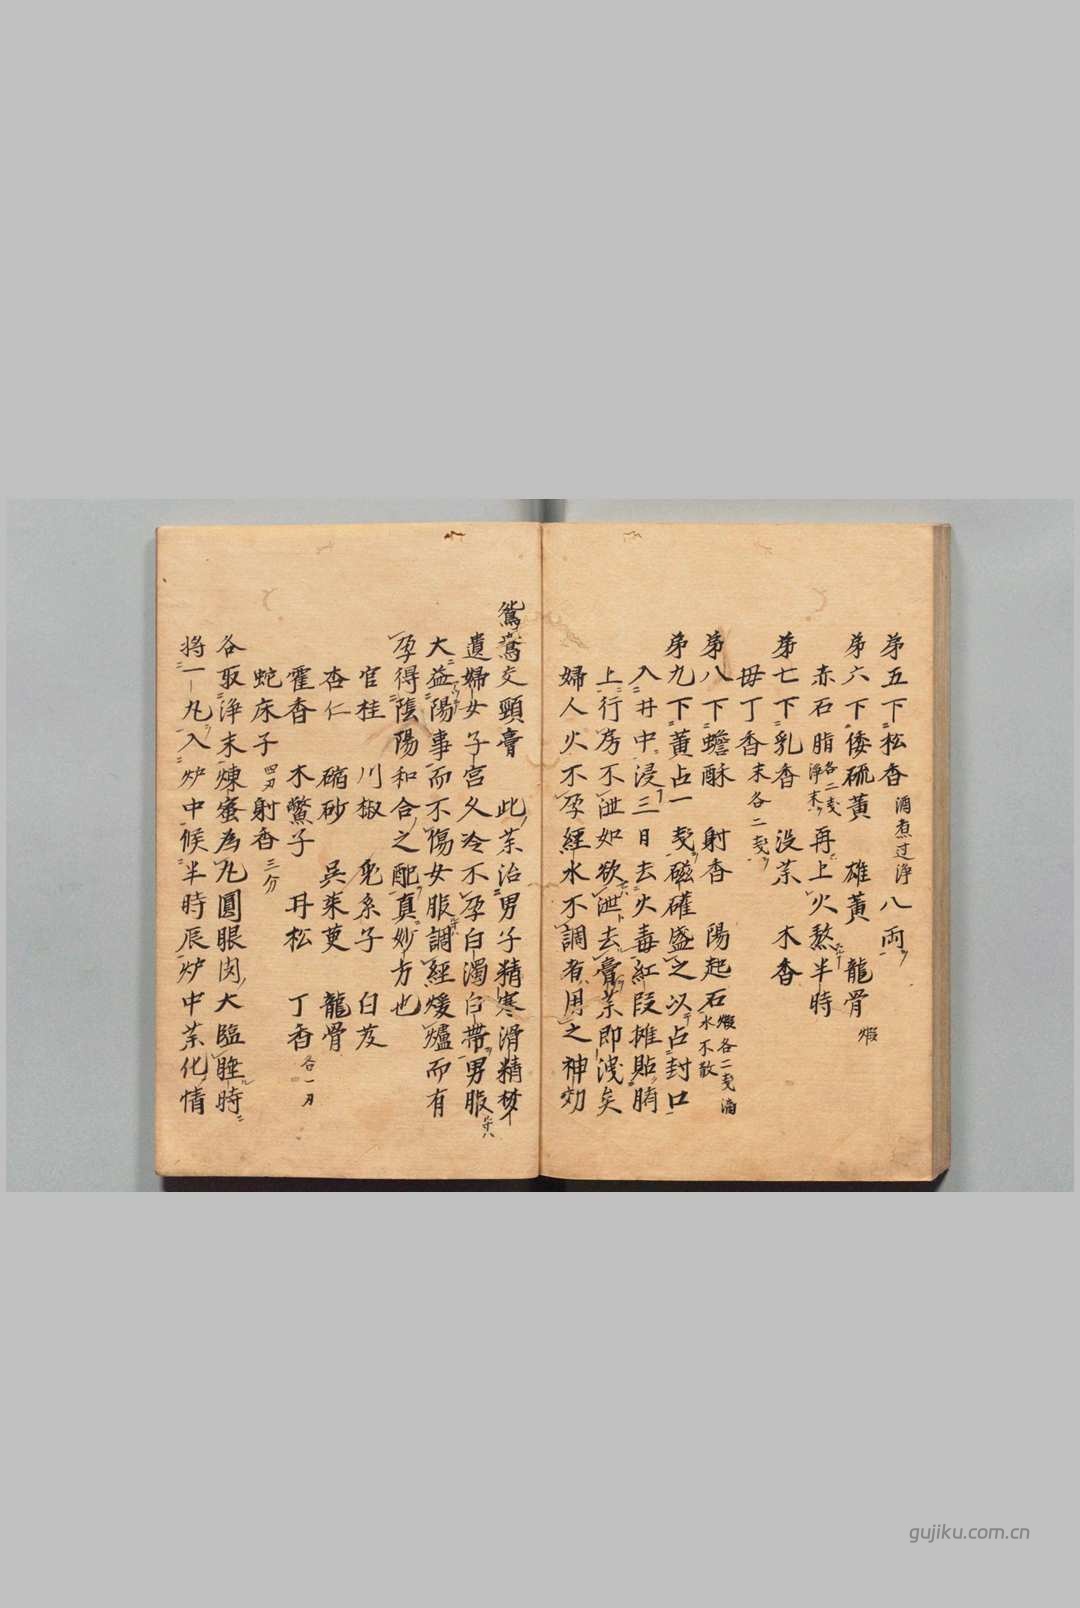 第五下松香 滴煮过浄 八両
第六下倭硫黄 雄黄 龍骨 煆
赤石脂 各二戔浄末 再上火熬半時
第七下乳香 没茶 木香
毋丁香 末各二戔
第八下蟾酥 射香 陽起石 煆各二戔滴水不散
第九下黄占一戔磁礶盛之以占封口
入井中浸三日去火毒紅段攤貼臍
上行房不泄如欲泄去膏茶即洩矣
婦人火不孕經水不調者用之神効
鴛鴦交頸膏 此茶治男子精寒滑精梦
遺婦女子宮久冷不孕白濁白帶男服
大益陽事而不傷女服調經煖爐而有
孕得陰陽和合之配真妙方也
官桂 川椒 兎糸子 白芨
杏仁 硇砂 吳茱萸 龍骨
霍香 木鱉子 丹松 丁香 各一刃
蛇床子 四刃 射香 三分
各取浄末煉蜜為丸圓眼肉大臨睡時
将一丸入炉中候半時辰炉中茶化情
gujiku.com.cn